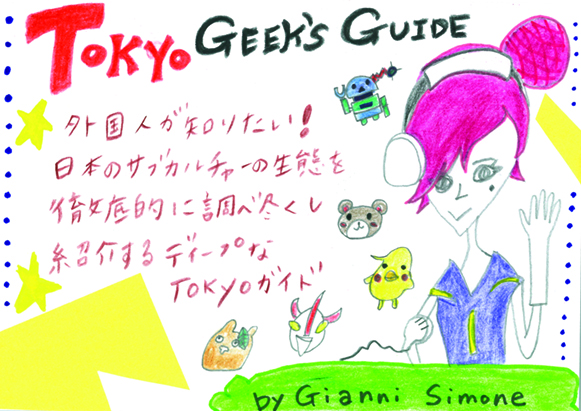 TOKYO GEEK'S GUIDE
外国人が知りたい!
日本のサブカルチャーの生態を
徹底的に調べ尽くし
紹介するディープな
TOKYOガイド
by Gianni Simone